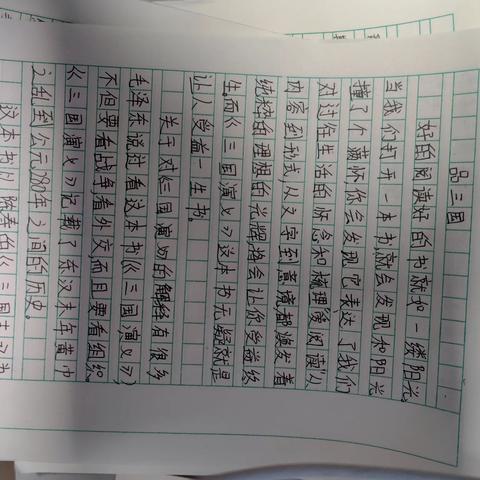 品三国
好的阅读好的书就如一缕阳光。
当我们打开一本书,就会发现和阳光
撞了个满怀,你会发现它表达了我们
对过往生活的怀念和梳理。爱阅读“从
内容到形式,从文字到意境,都焕发着
纯粹组理理的光辉,将会让你受益终
生。而《三国演义》这本书无疑就是
让人受益一生书。
关于对《三国演义》的解经有很多
毛泽东说过看这本书(《三国演义》)
不但要看战争看外交,而且要看组织。
《三国演义》记载了东汉末年黄巾
之乱到公元280年之间的历史。
这本书从